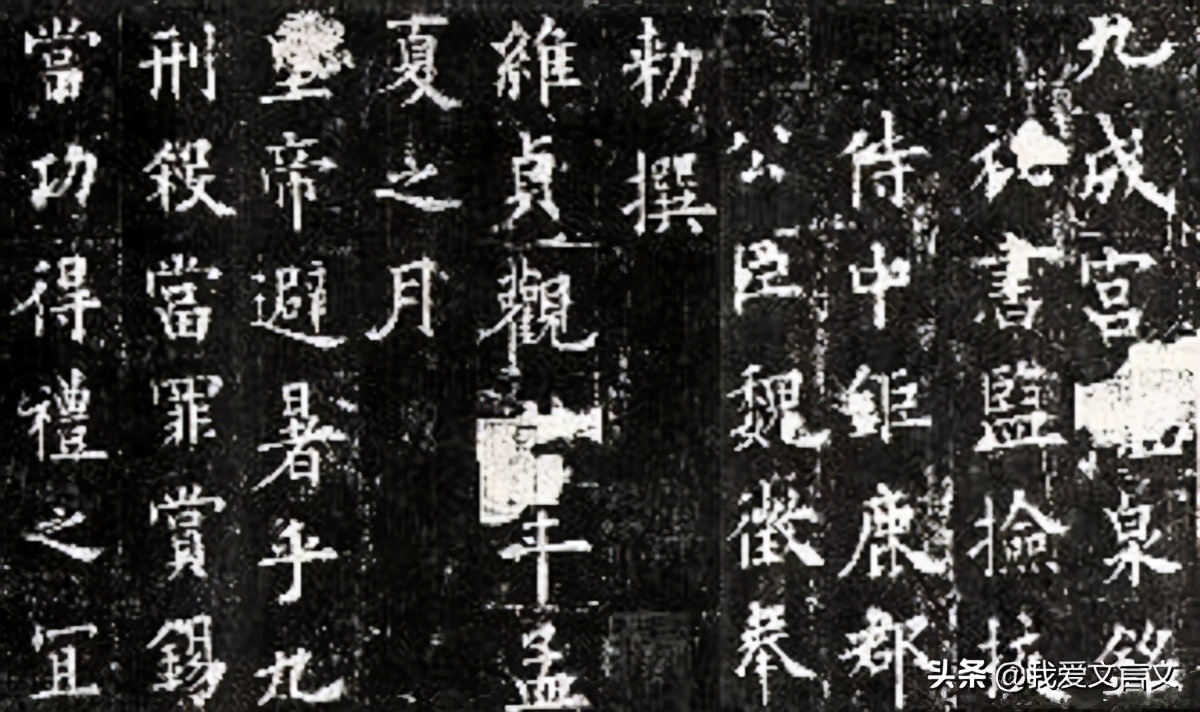 九成宮泉銘
秘書監撿挍
侍中鉅鹿郡
公臣魏徵奉
勅撰
維貞觀年孟
夏之月
皇帝避暑乎九
刑殺當罪賞錫
當功得禮之宜
头条 @我爱文言文